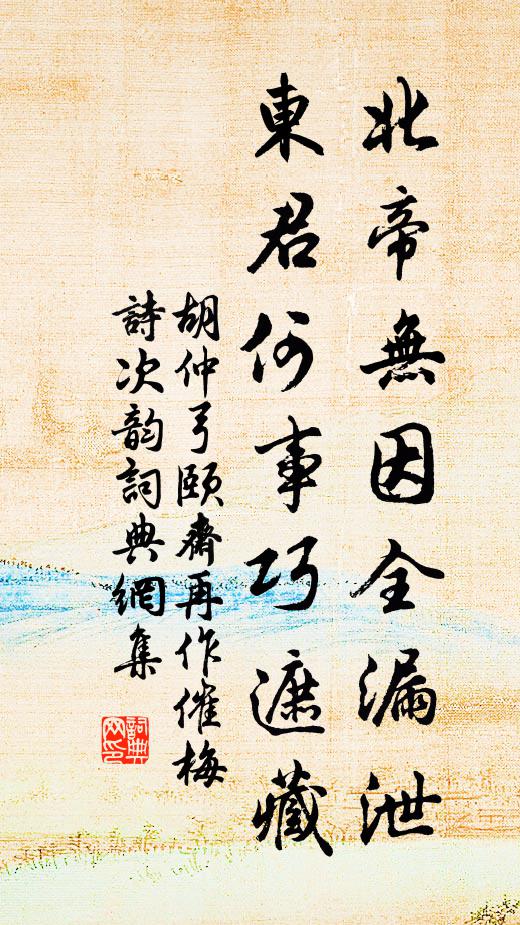 北帝無因全漏泄
東君何事巧遮藏
胡仲弓頤齋再作催梅
詩次韵詞典網集
詞典
网印